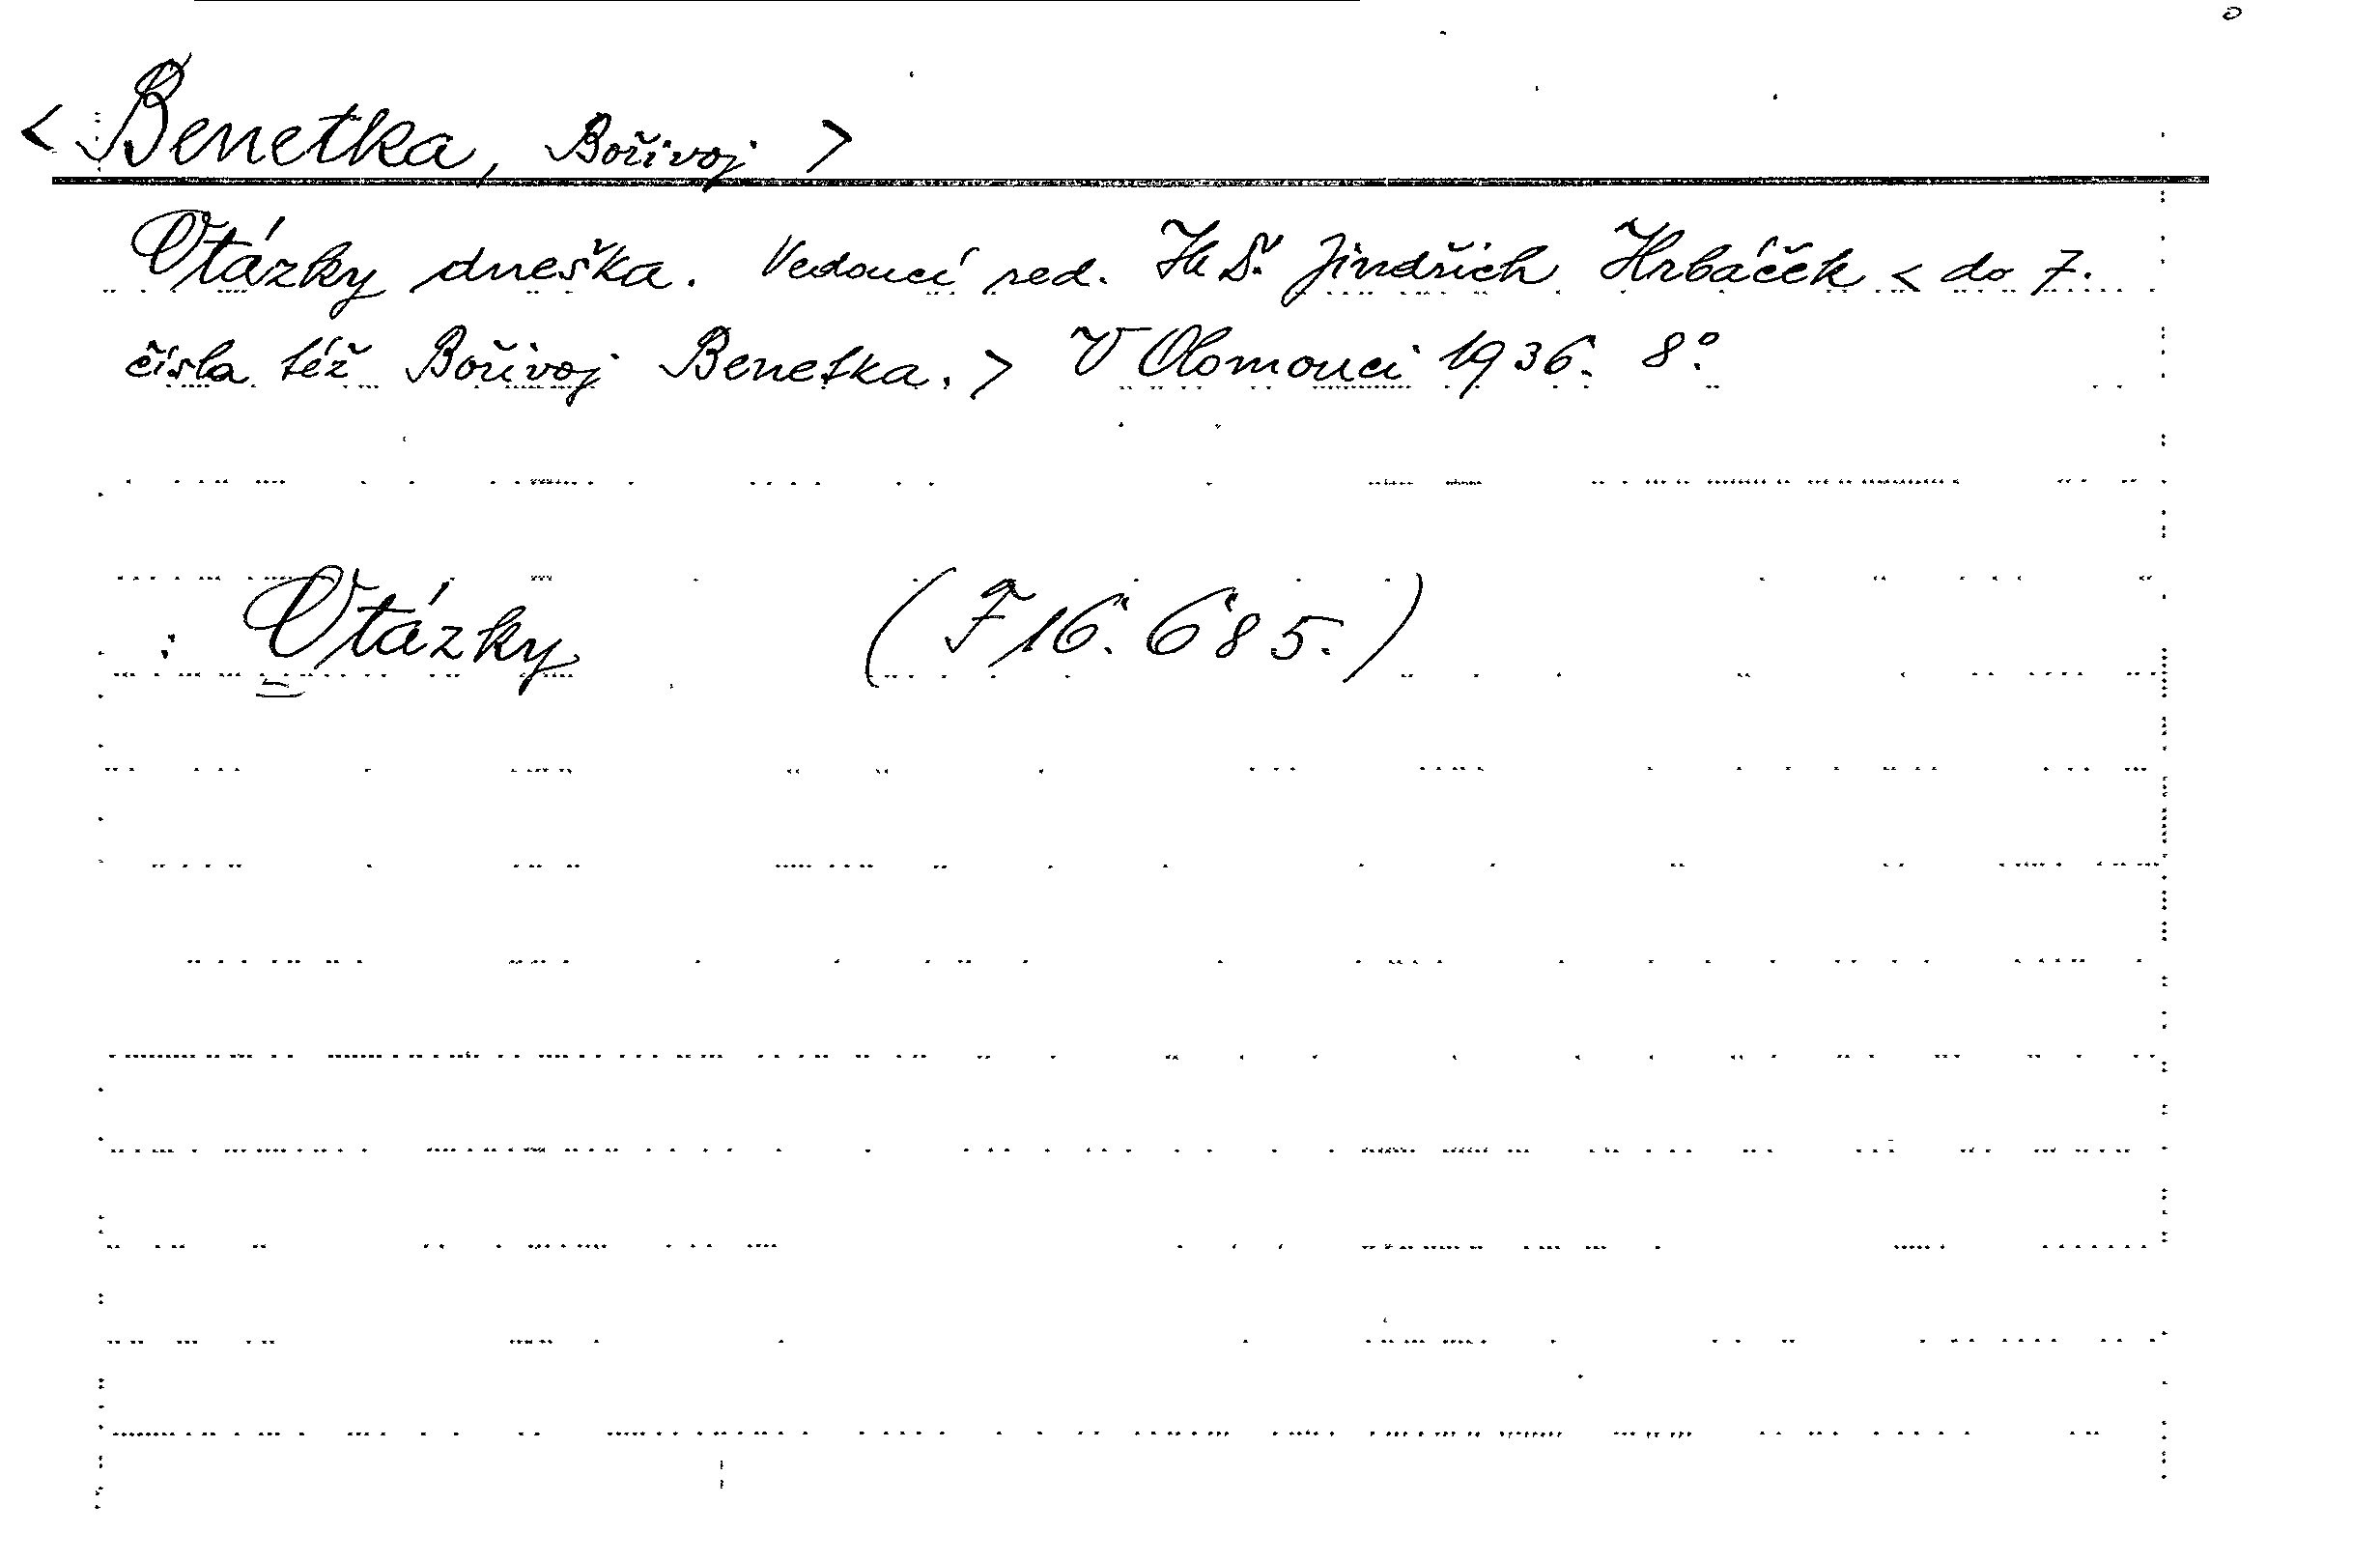 < Benetka, Bořivoj >
Otázky dneška. Vedoucí red. Jindřich Hrbáček < do 7.
čísla též Bořivoj Benetka. > V Olomouci 1936. 8°.
: Otázky (F 16.685.)